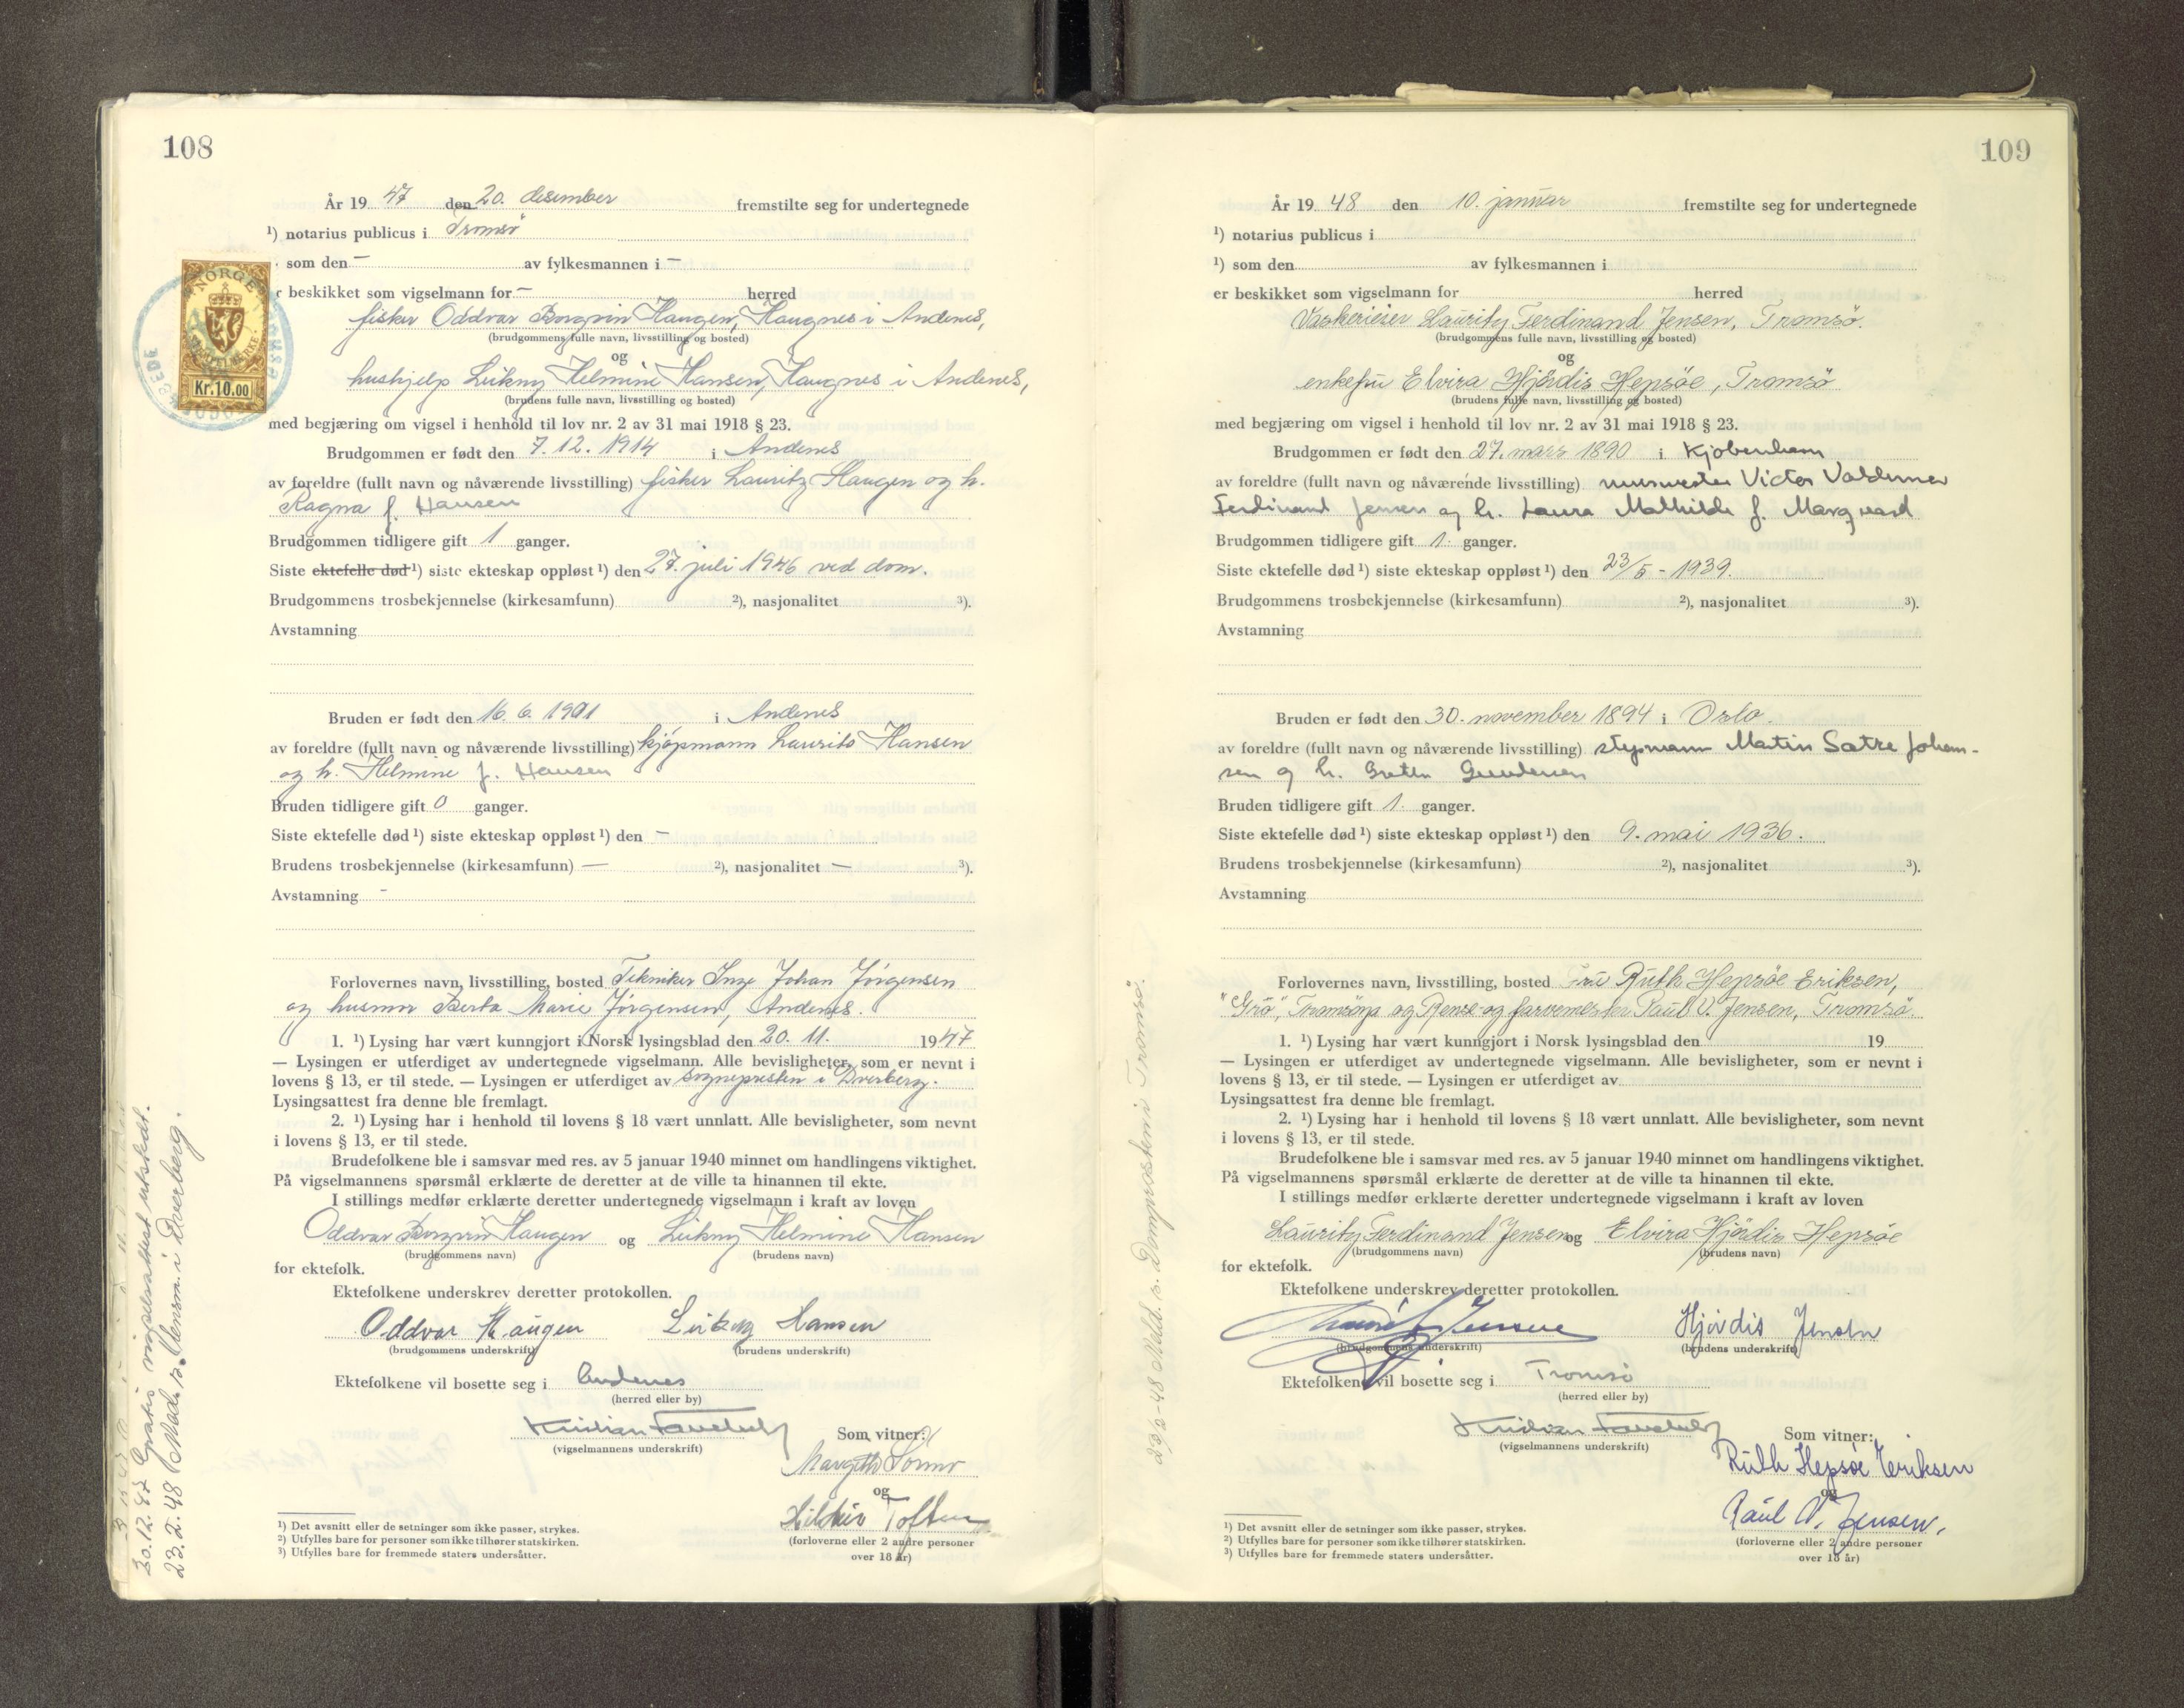 108
År 19 47 den 20. desember fremstilte seg for undertegnede
¹) notarius publicus i Tromsö
som den — av fylkesmannen i —
r beskikket som vigselmann for — herred
NORGE
Kr. 10.00
fisker Oddvar Borgvin Haugen, Haugnes i Andenes,
(brudgommens fulle navn, livsstilling og bosted)
og
hushjelp Leikny Helmine Hansen, Haugnes i Andenes,
(brudens fulle navn, livsstilling og bosted)
med begjæring om vigsel i henhold til lov nr. 2 av 31 mai 1918 § 23.
Brudgommen er født den 7.12.1914 i Andenes
av foreldre (fullt navn og nåværende livsstilling) fisker Lauritz Haugen og h.
Ragna f. Hansen
Brudgommen tidligere gift 1 ganger.
Siste ektefelle død ¹) siste ekteskap oppløst ¹) den 27. juli 1946 ved dom.
Brudgommens trosbekjennelse (kirkesamfunn) ²), nasjonalitet ³).
Avstamning
Bruden er født den 16.6.1901 i Andenes
av foreldre (fullt navn og nåværende livsstilling) kjøpmann Laurits Hansen
og h. Helmine f. Hansen
Bruden tidligere gift 0 ganger.
Siste ektefelle død ¹) siste ekteskap oppløst ¹) den —
Brudens trosbekjennelse (kirkesamfunn) — ²), nasjonalitet — ³).
Avstamning -
Forlovernes navn, livsstilling, bosted Tekniker Inge Johan Jörgensen
og husmor Berta Marie Jörgensen, Andenes.
1. ¹) Lysing har vært kunngjort i Norsk lysingsblad den 20. 11. 1947
— Lysingen er utferdiget av undertegnede vigselmann. Alle bevisligheter, som er nevnt i
lovens § 13, er til stede. — Lysingen er utferdiget av sognepresten i Dverberg.
Lysingsattest fra denne ble fremlagt.
2. ¹) Lysing har i henhold til lovens § 18 vært unnlatt. Alle bevisligheter, som nevnt
i lovens § 13, er til stede.
Brudefolkene ble i samsvar med res. av 5 januar 1940 minnet om handlingens viktighet.
På vigselmannens spørsmål erklærte de deretter at de ville ta hinannen til ekte.
I stillings medfør erklærte deretter undertegnede vigselmann i kraft av loven
Oddvar Borgvin Haugen og Leikny Helmine Hansen
(brudgommens navn) (brudens navn)
for ektefolk.
Ektefolkene underskrev deretter protokollen.
Oddvar Haugen Leikny Hansen
(brudgommens underskrift) (brudens underskrift)
Ektefolkene vil bosette seg i Andenes
(herred eller by)
(vigselmannens underskrift) Som vitner:
og
Toften
(forloverne eller 2 andre personer
over 18 år)
¹) Det avsnitt eller de setninger som ikke passer, strykes.
²) Utfylles bare for personer som ikke tilhører statskirken.
³) Utfylles bare for fremmede staters undersåtter.
30.12.47 Gratis vigselsattest utstedt.
23.2.48 i Dverberg.
109
År 19 48 den 10. januar fremstilte seg for undertegnede
¹) notarius publicus i
¹) som den av fylkesmannen i
er beskikket som vigselmann for herred
Vaskerieier Lauritz Ferdinand Jensen, Tromsö.
(brudgommens fulle navn, livsstilling og bosted)
og
enkefru Elvira Hjördis Hepsöe, Tromsö
(brudens fulle navn, livsstilling og bosted)
med begjæring om vigsel i henhold til lov nr. 2 av 31 mai 1918 § 23.
Brudgommen er født den 27. mars 1890 i Kjöbenhavn
av foreldre (fullt navn og nåværende livsstilling) murmester Victor Valdemar
Ferdinand Jensen og h. Laura Mathilde f. Marqvard
Brudgommen tidligere gift 1. ganger.
Siste ektefelle død ¹) siste ekteskap oppløst ¹) den 23/5 - 1939.
Brudgommens trosbekjennelse (kirkesamfunn) ²), nasjonalitet ³).
Avstamning
Bruden er født den 30. november 1894 i Oslo.
av foreldre (fullt navn og nåværende livsstilling) styrmann Martin Satre Johan-
sen og h. Grethe Gundersen
Bruden tidligere gift 1. ganger.
Siste ektefelle død ¹) siste ekteskap oppløst ¹) den 9. mai 1936.
Brudens trosbekjennelse (kirkesamfunn) ²), nasjonalitet ³).
Avstamning
Forlovernes navn, livsstilling, bosted Fru Ruth Hepsöe Eriksen,
"Grö", Tromsöya og Rense- og farvemester Paul V. Jensen, Tromsö.
1. ¹) Lysing har vært kunngjort i Norsk lysingsblad den 19
— Lysingen er utferdiget av undertegnede vigselmann. Alle bevisligheter, som er nevnt i
lovens § 13, er til stede. — Lysingen er utferdiget av
Lysingsattest fra denne ble fremlagt.
2. ¹) Lysing har i henhold til lovens § 18 vært unnlatt. Alle bevisligheter, som nevnt
i lovens § 13, er til stede.
Brudefolkene ble i samsvar med res. av 5 januar 1940 minnet om handlingens viktighet.
På vigselmannens spørsmål erklærte de deretter at de ville ta hinannen til ekte.
I stillings medfør erklærte deretter undertegnede vigselmann i kraft av loven
Lauritz Ferdinand Jensen og Elvira Hjördis Hepsöe
(brudgommens navn) (brudens navn)
for ektefolk.
Ektefolkene underskrev deretter protokollen.
Jensen Hjördis Jensen
(brudgommens underskrift) (brudens underskrift)
Ektefolkene vil bosette seg i Tromsö
(herred eller by)
(vigselmannens underskrift) Som vitner:
Ruth Hepsöe Eriksen
og
Paul V. Jensen.
(forloverne eller 2 andre personer
over 18 år)
¹) Det avsnitt eller de setninger som ikke passer, strykes.
²) Utfylles bare for personer som ikke tilhører statskirken.
³) Utfylles bare for fremmede staters undersåtter.
23/2-48 Meld. s. Domprosten i Tromsö.